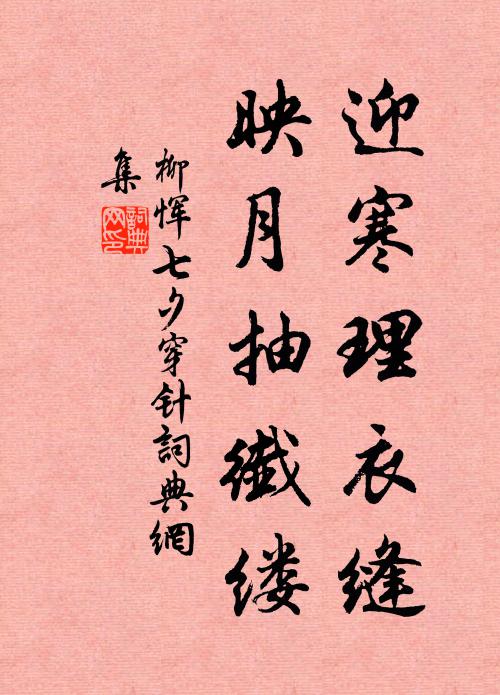 迎寒理衣縫
映月抽纖缕
柳恽七夕穿针詞典網
集
詞典網印